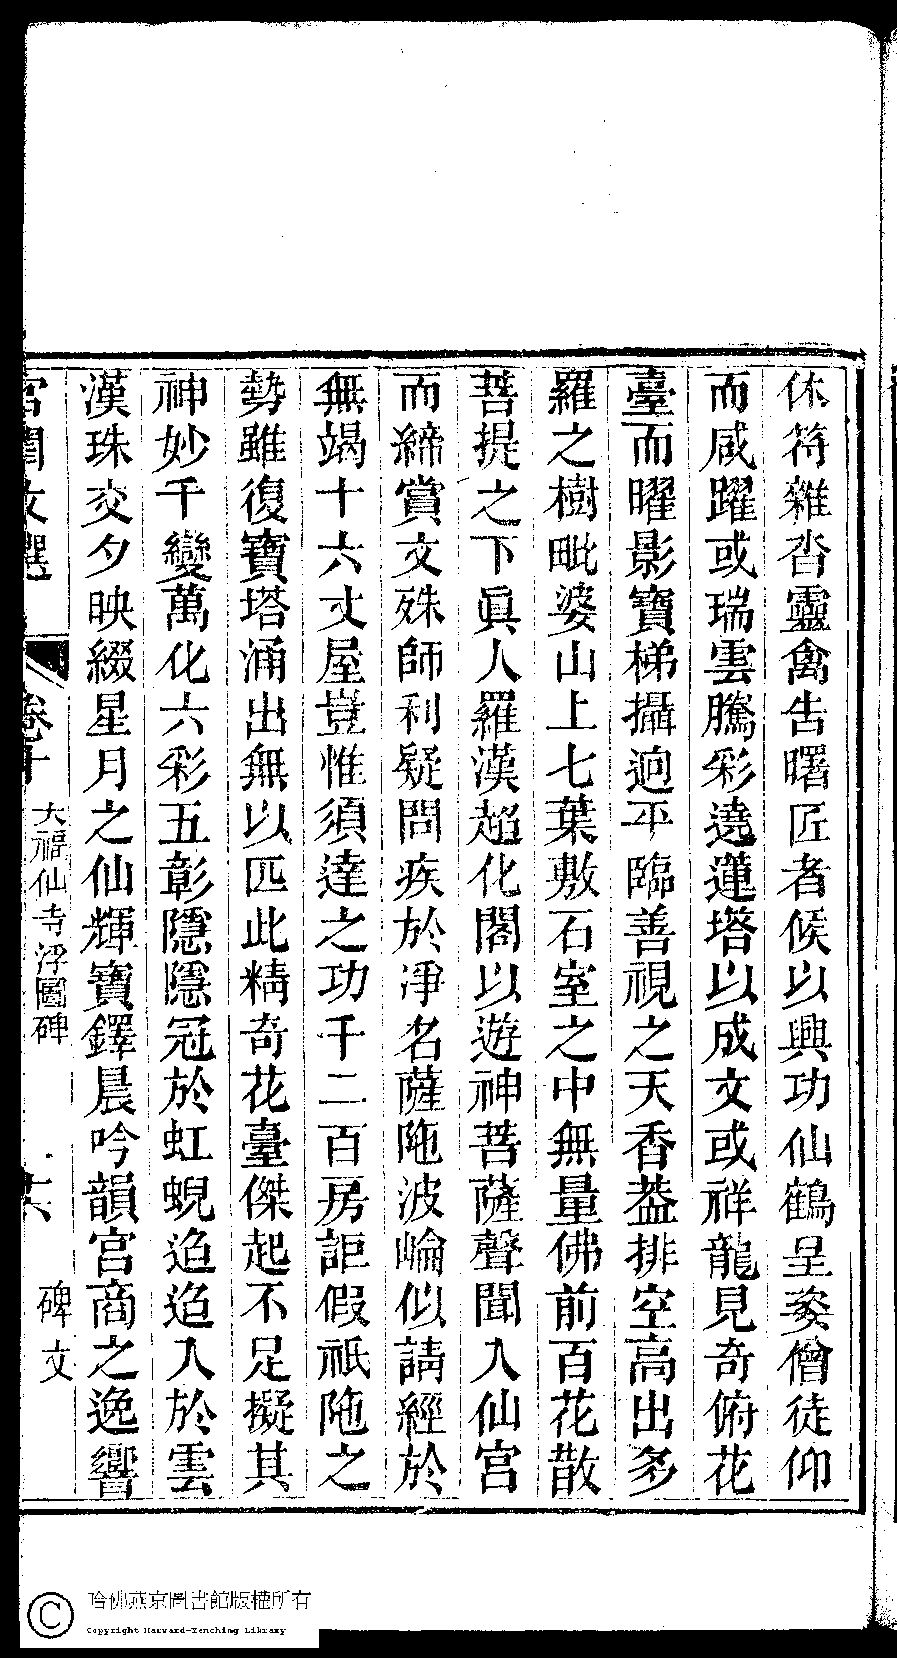 休符雜沓靈禽告曙匠者候以興功仙鶴呈姿僧徒仰
而咸躍或瑞雲騰彩遶蓮塔以成文或祥龍見奇俯花
臺而曜影寶梯攝逈平臨善視之天香葢排空高出多
羅之樹毗婆山上七葉敷石室之中無量佛前百花散
菩提之下眞人羅漢超化閣以遊神菩薩聲聞入仙宮
而締賞文殊師利疑問疾於淨名薩陁波崘似請經於
無竭十六丈屋豈惟須達之功千二百房詎假祇陁之
勢雖復寶塔涌出無以匹此精奇花臺傑起不足擬其
神妙千變萬化六彩五彰隱隱冠於虹蜺迢迢入於雲
漢珠交夕映綴星月之仙輝寶鐸晨吟韻宮商之逸響
宮閨文選 卷十 大福仙寺浮圖碑 十六 碑文
哈佛燕京圖書館版權所有
Copyright Harvard-Yenching Library